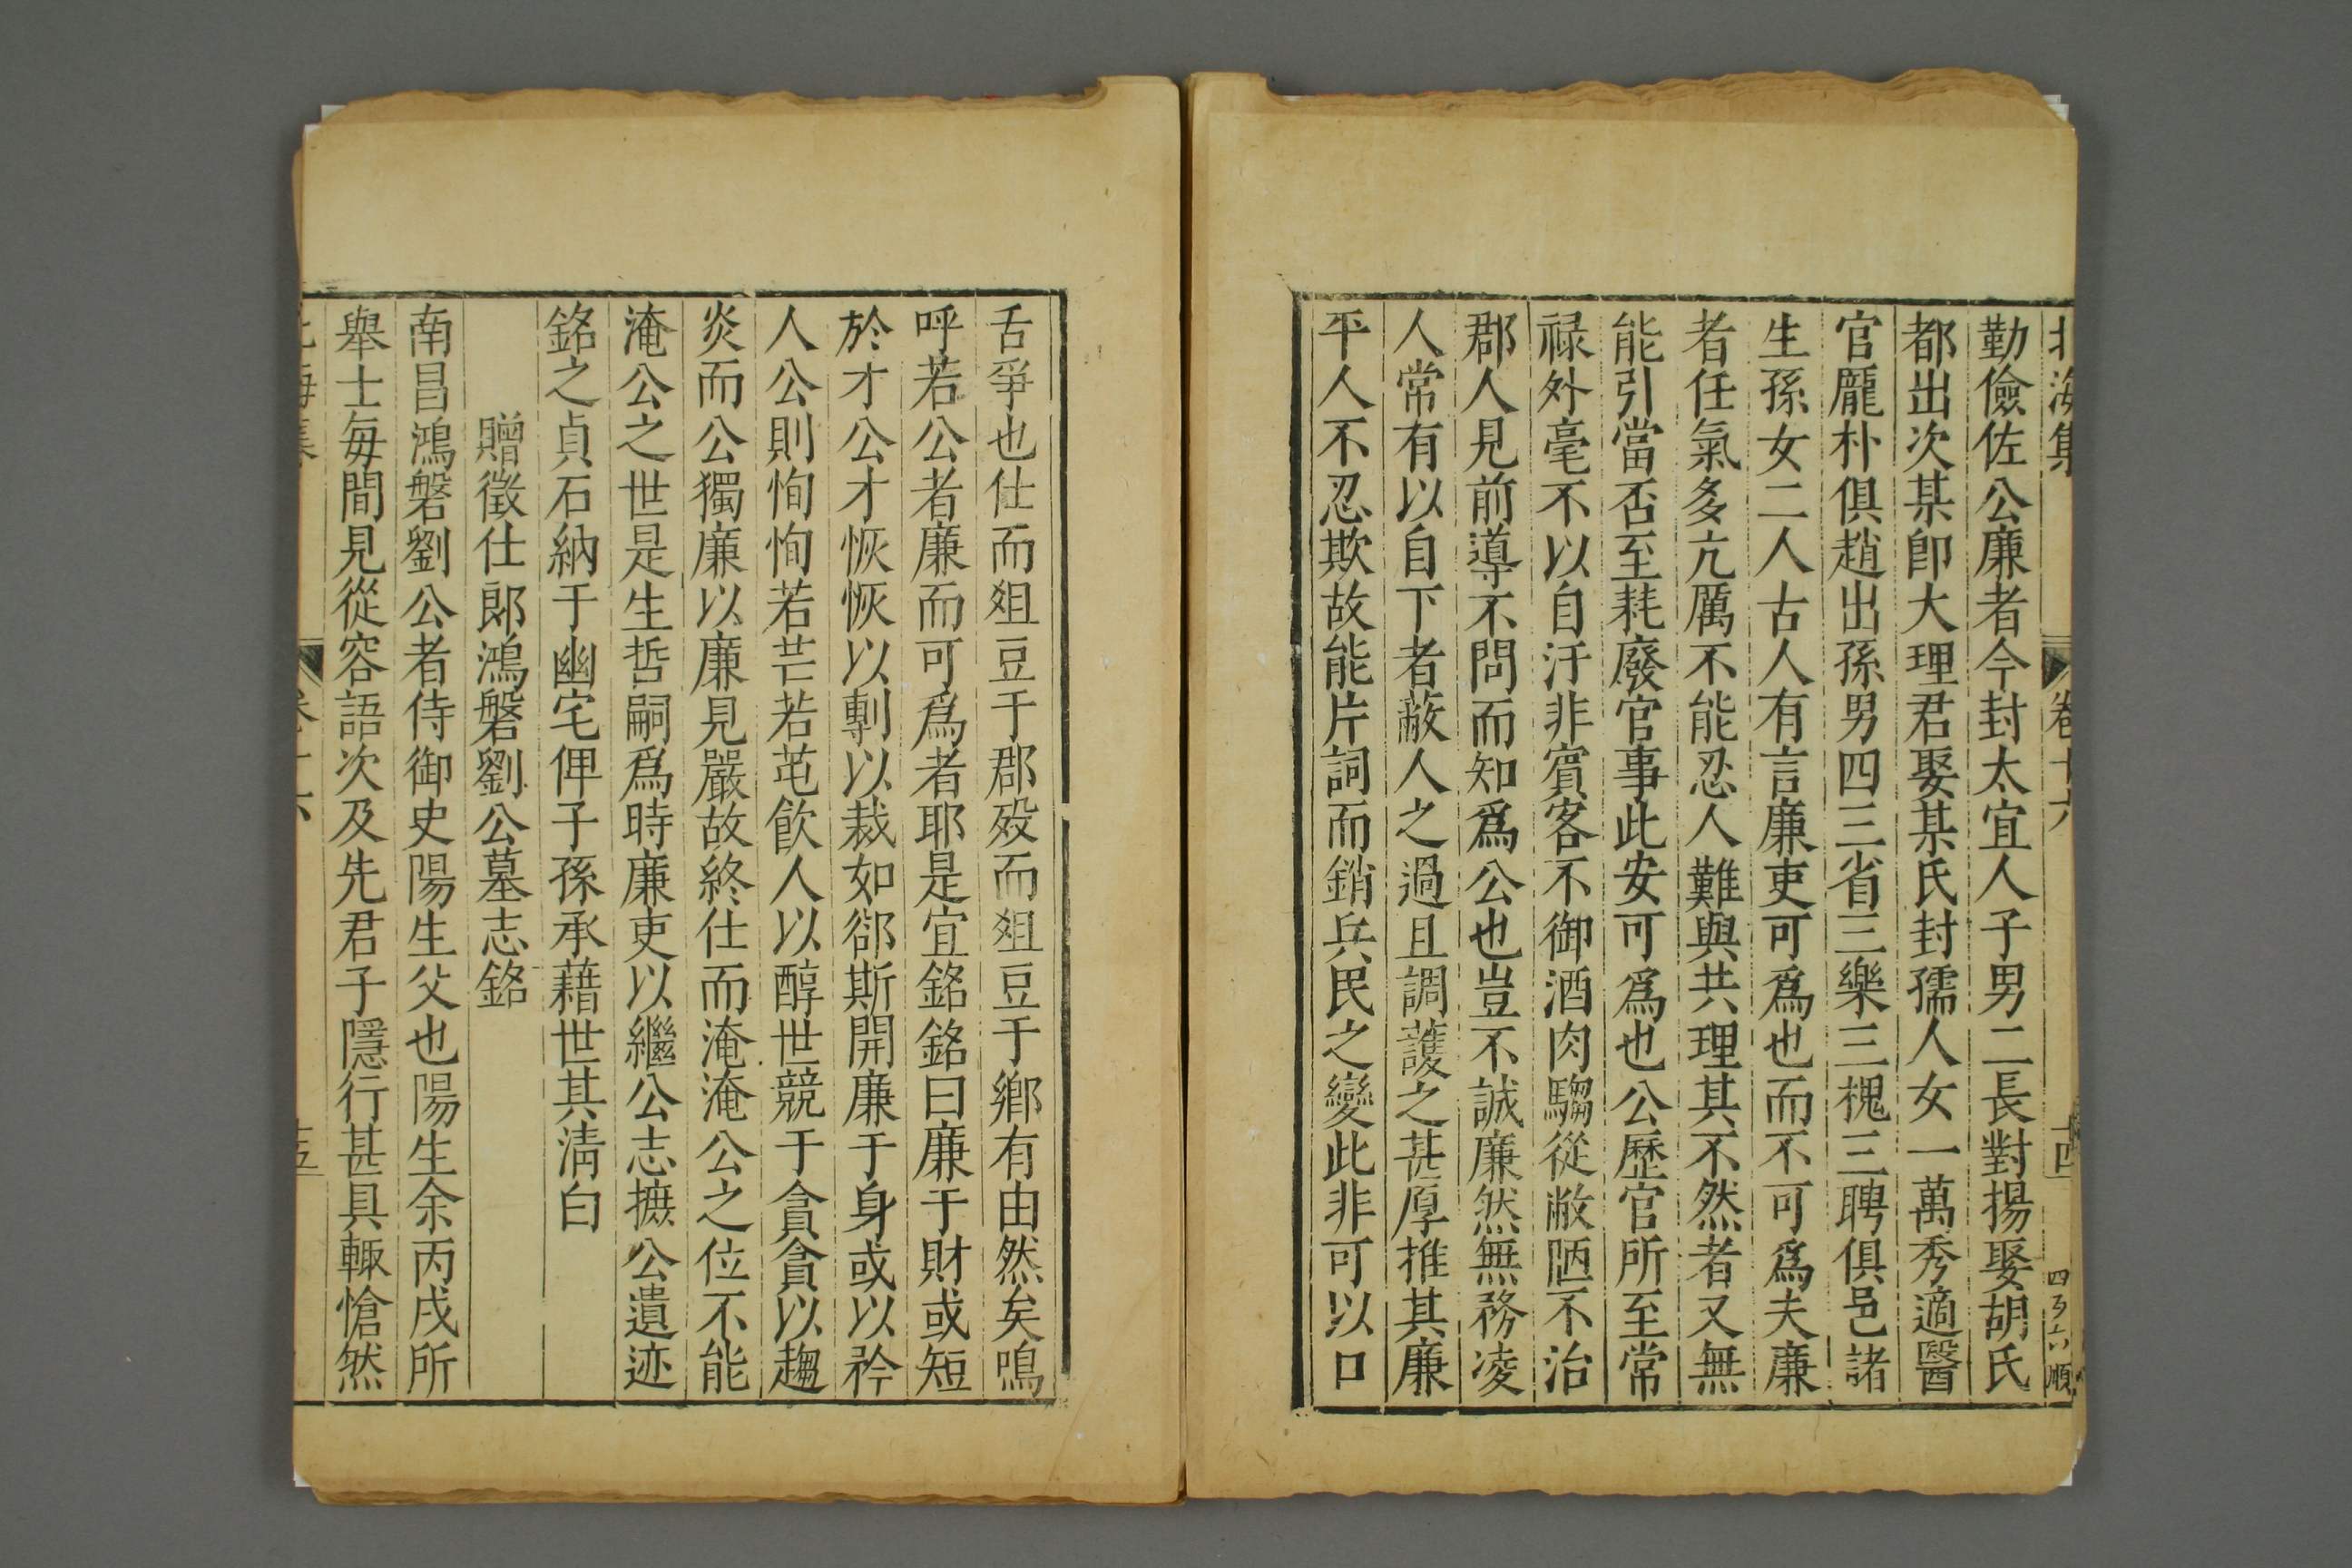 北海集 卷十六 十四 四百六 順
勤儉佐公廉者今封太宜人子男二長對揚娶胡氏
都出次某卽大理君娶某氏封孺人女一萬秀適醫
官龐朴俱趙出孫男四三省三樂三槐三聘俱邑諸
生孫女二人古人有言廉吏可爲也而不可爲夫廉
者任氣多亢厲不能忍人難與共理其不然者又無
能引當否至耗廢官事此安可爲也公歷官所至常
禄外毫不以自汙非賓客不御酒肉騶從敝陋不治
郡人見前導不問而知爲公也豈不誠廉然無務凌
人常有以自下者蔽人之過且調護之甚厚推其廉
平人不忍欺故能片詞而銷兵民之變此非可以口
舌爭也仕而俎豆于郡歿而俎豆于鄉有由然矣嗚
呼若公者廉而可爲者耶是宜銘銘曰廉于財或短
於才公才恢恢以剸以裁如郤斯開廉于身或以矜
人公則恂恂若芒若芚飲人以醇世競于貪貪以趨
炎而公獨廉以廉見嚴故終仕而淹淹公之位不能
淹公之世是生哲嗣爲時廉吏以繼公志摭公遺迹
銘之貞石納于幽宅俾子孫承藉世其淸白
贈徵仕郎鴻磐劉公墓志銘
南昌鴻磐劉公者侍御史陽生父也陽生余丙戌所
舉士每間見從容語次及先君子隱行甚具輒愴然
北海集 卷十六 十五